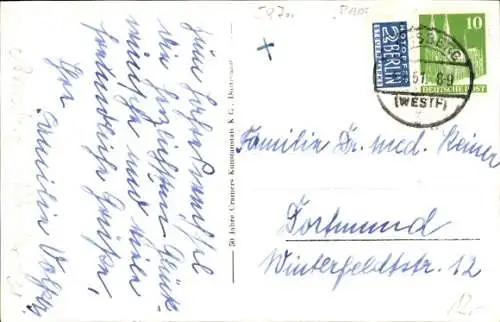 597n
Zum hohen Namensfest
die herzlichsten Glück-
wünsche und viele
freundliche Grüße,
Ihre Familie Volker
50 Jahre Cramers Kunstanstalt K.G., Dortmund
NOTOPFER
2 BERLIN
STEUERMARKE
10
DEUTSCHE POST
SBERG
51. 8-9
(WESTF)
Familie Dr. med. Reiner
Dortmund
Winterfeldtstr. 12
12,-